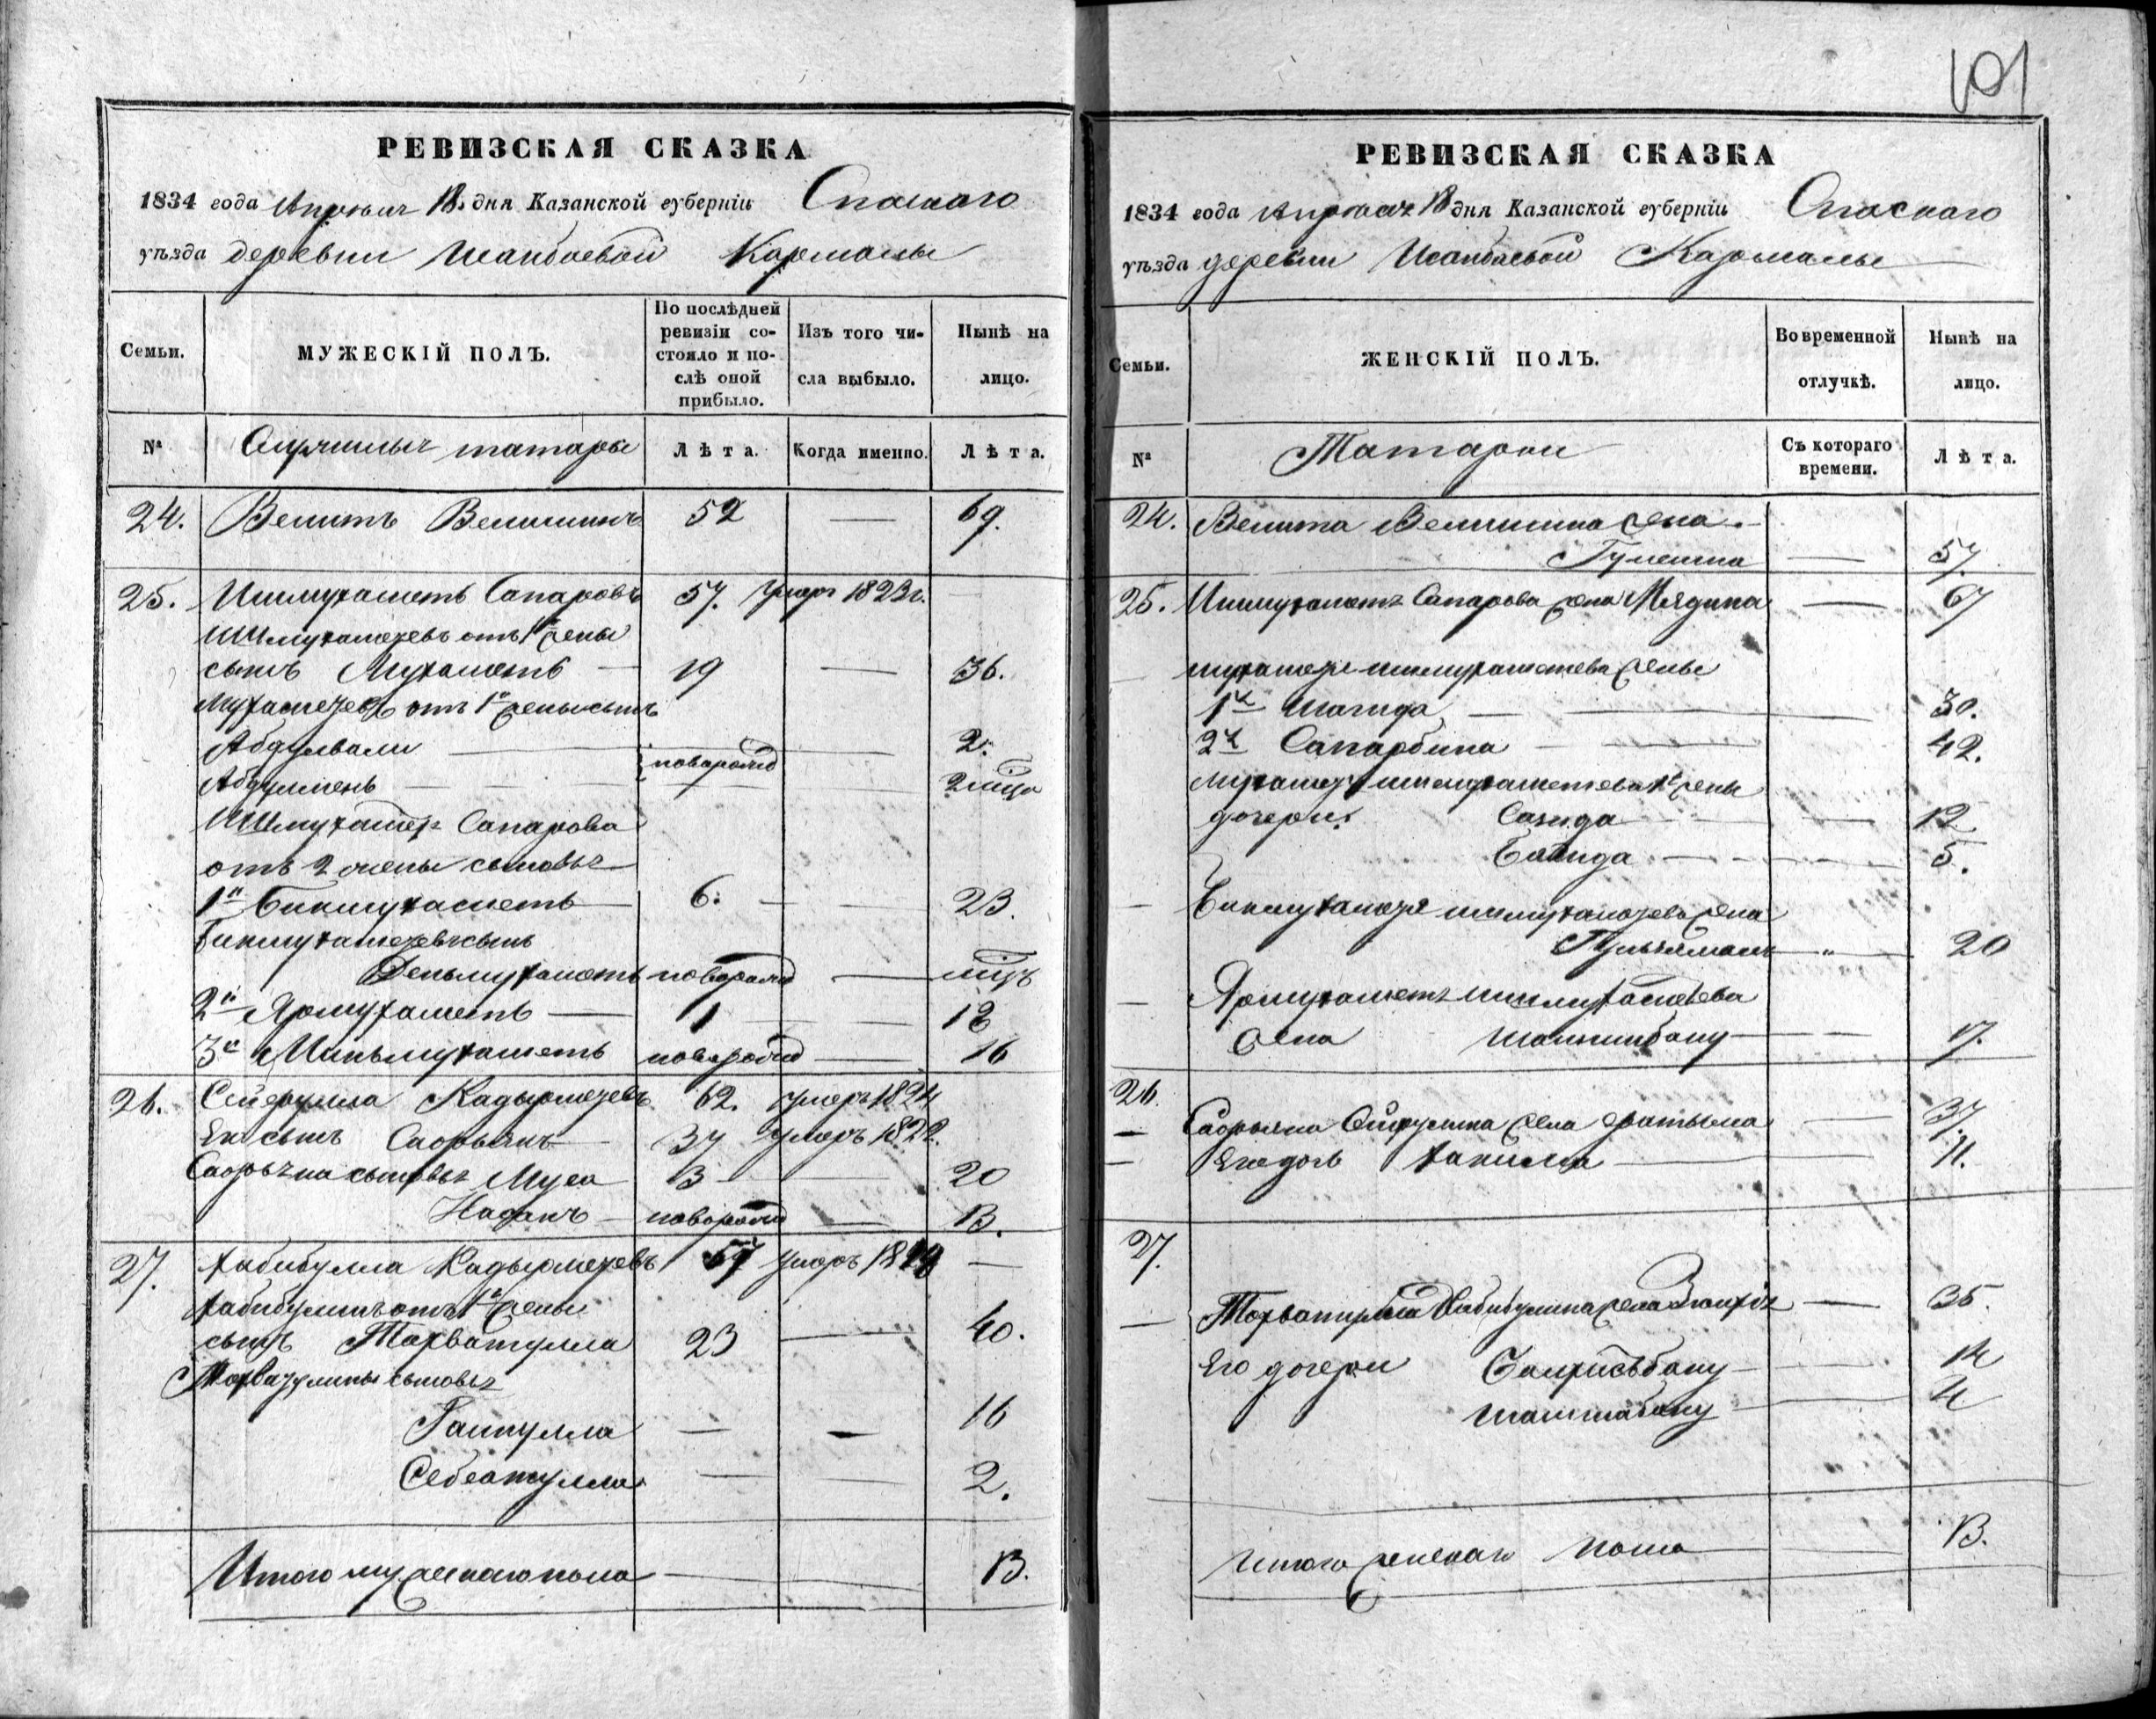 101
РЕВИЗСКАЯ СКАЗКА
1834 года Апреля 18 дня Казанской губерніи Спаскаго
уѣзда деревни Исанбаевой Кармалы
Семьи.
МУЖЕСКІЙ ПОЛЪ.
По послѣдней ревизіи состояло и послѣ оной прибыло.
Изъ того числа выбыло.
Нынѣ на лицо.
№
татары
Лѣта.
Когда именно.
Лѣта.
24. 52 — 69.
25. Ишмухаметь Сапаровъ 57. умеръ 1823г. —
Ишмухаметевъ отъ 1й жены
сынъ Мухаметь — 19 — 36.
Мухаметевъ отъ 1й жены сынъ
Абдулвали — новорожд — 2.
Абдулмень —
Ишмухамет Сапарова
отъ 2 жены сыновья
1й Бикмухаметь 6. — 23.
Бикмухаметевъ сынъ
новорожд —
2й Ярмухаметь — 1 — 18
3й Миньмухаметь новорожд — 16
26. Сейфулла Кадырметевъ 62. умеръ 1824
Ево сынъ 37 умеръ 1822.
сыновья Муса 3 — 20
новорожд — 13.
27. Хабибулла Кадырметевъ 57 умеръ —
Хабибуллинъ отъ 1й жены
сынъ Тохватулла 23 — 40.
сыновья
— — 16
Себеатулла — — 2.
Итого мужескаго пола — 13.
РЕВИЗСКАЯ СКАЗКА
1834 года Апреля 18 дня Казанской губерніи Спаскаго
уѣзда деревни Исанбаевой Кармалы
Семьи.
ЖЕНСКІЙ ПОЛЪ.
Во временной отлучкѣ.
Нынѣ на лицо.
№
Татарки
Съ котораго времени.
Лѣта.
24. жена
— 57.
25. Ишмухаметя Сапарова жена Мядина — 67
Мухаметя Ишмухаметева жены
1я Шагида — 30.
2я Сапарбика — 42.
Мухаметя Ишмухаметева 1й жены
дочери: Сагида — 12
— 5.
Бикмухаметя Ишмухаметева жена
— 20
Ярмухаметя Ишмухаметева
жена — 17.
26.
Сейфулина жена Фатыма — 37.
Ево дочь Хакима — 11.
27.
Тохватуллы Хабибулина жена — 35.
Ево дочери — 14
— 4.
Итого женскаго пола — 13.